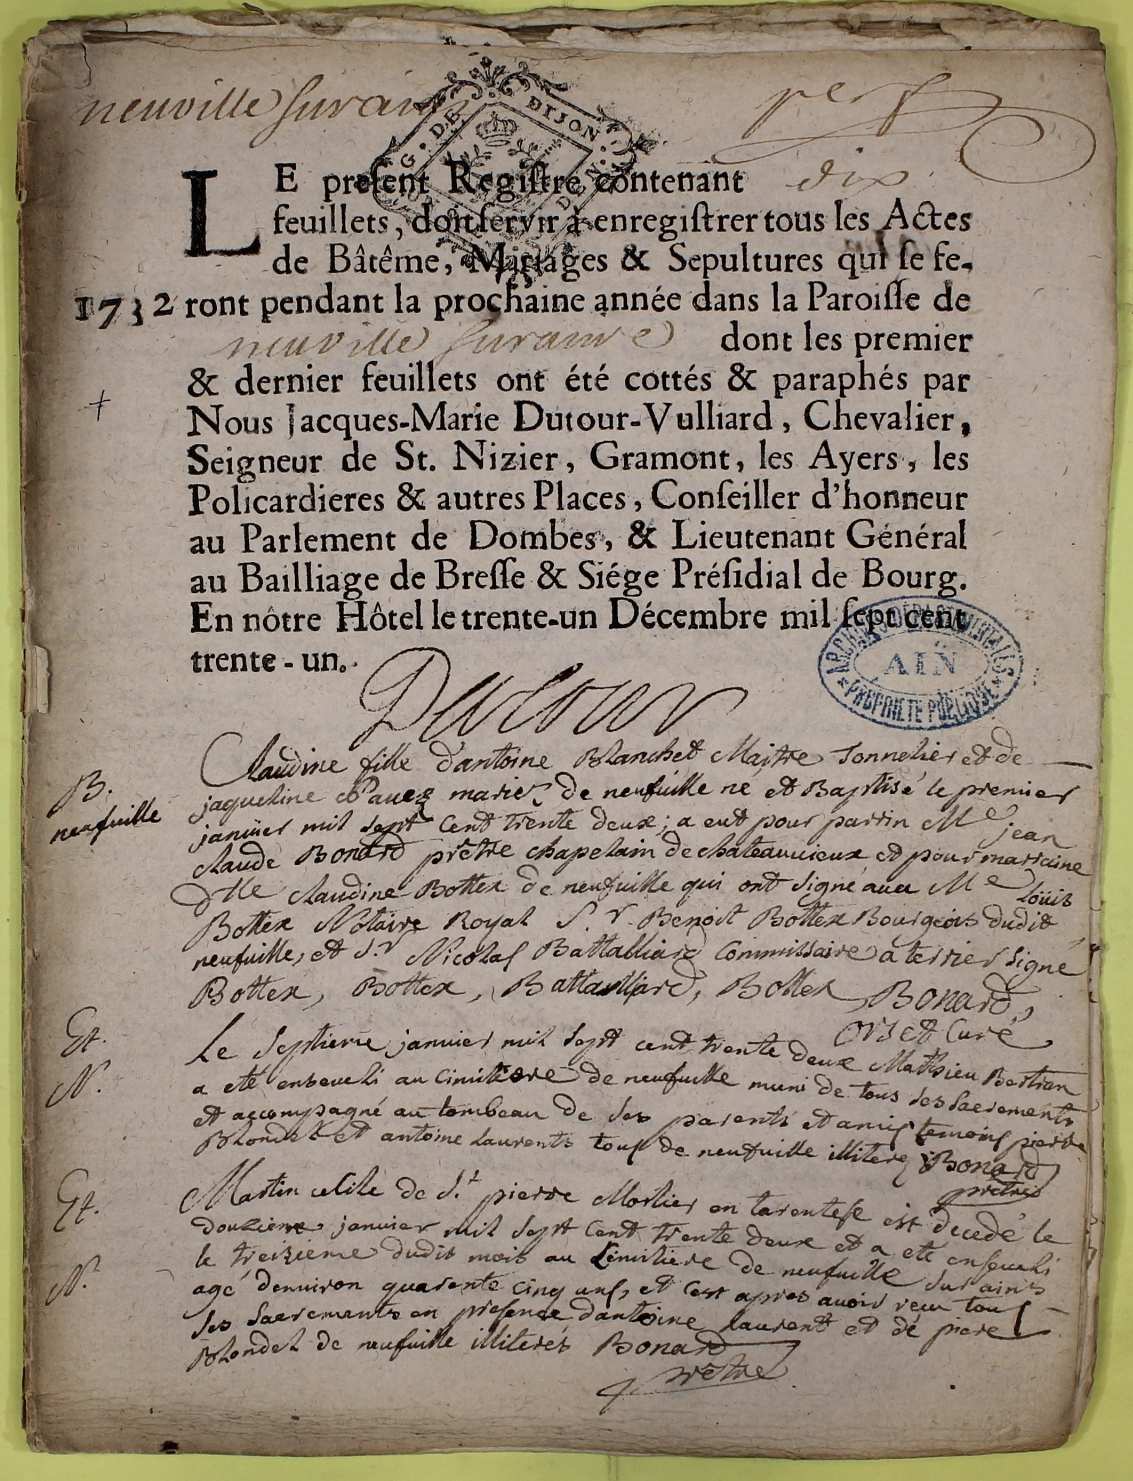 neuville sur ains
G. DE DIJON
LE present Registre contenant dix
feuillets, doit servir à enregistrer tous les Actes
de Bâtême, Mariages & Sepultures qui se fe-
1732 ront pendant la prochaine année dans la Paroisse de
neuville sur ains dont les premier
& dernier feuillets ont été cottés & paraphés par
Nous Jacques-Marie Dutour-Vulliard, Chevalier,
Seigneur de St. Nizier, Gramont, les Ayers, les
Policardieres & autres Places, Conseiller d'honneur
au Parlement de Dombes, & Lieutenant Général
au Bailliage de Bresse & Siége Présidial de Bourg.
En nôtre Hôtel le trente-un Décembre mil sept cent
trente-un.
ARCHIVES DÉPARTEMENTALES
AIN
PROPRIÉTÉ PUBLIQUE
Dutour
B.
neufuille
Claudine fille d'antoine Blanchet Maitre Tonnelier et de
jaqueline mariez de neufuille né et Baptisé le premier
janvier mil sept Cent trente deux; a eut pour parrin Me jean
claude Bonard prêtre chapelain de chateauvieux et pour marraine
dlle claudine Bottex de neufuille qui ont signé avec Me Loüis
Bottex Notaire Royal Sr. Benoit Bottex Bourgeois dudit
neufuille, et Sr Nicolas Battalliard Commissaire a terrier signé
Bottex, Bottex, Battailliard, Bottex, Bonard,
orset Curé
Et.
N.
Le septieme janvier mil sept cent trente deux Mathieu Bertran
a eté enseveli au cimitiere de neufuille muni de tous ses sacrements
et accompagné au tombeau de ses parents et amis temoins pierre
Blondel et antoine Laurents tous de neufuille illiterez Bonard
prêtre
Et.
N.
Martin celile de St. pierre Morlier en tarentese est decedé le
douzieme janvier mil sept Cent trente deux et a eté enseveli
le treizieme dudit mois au Cimitiere de neufuille sur ains
agé denviron quarente cinq ans, et c'est apres avoir reçu tous
ses sacrements en presence dantoine laurent et de piere
Blondel de neufuille illiterés Bonard
prêtre